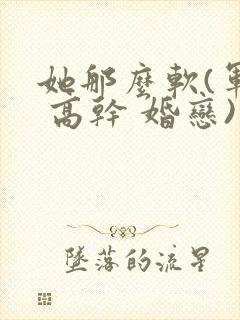 她那麼軟(軍
高幹 婚戀)
墜落的流星